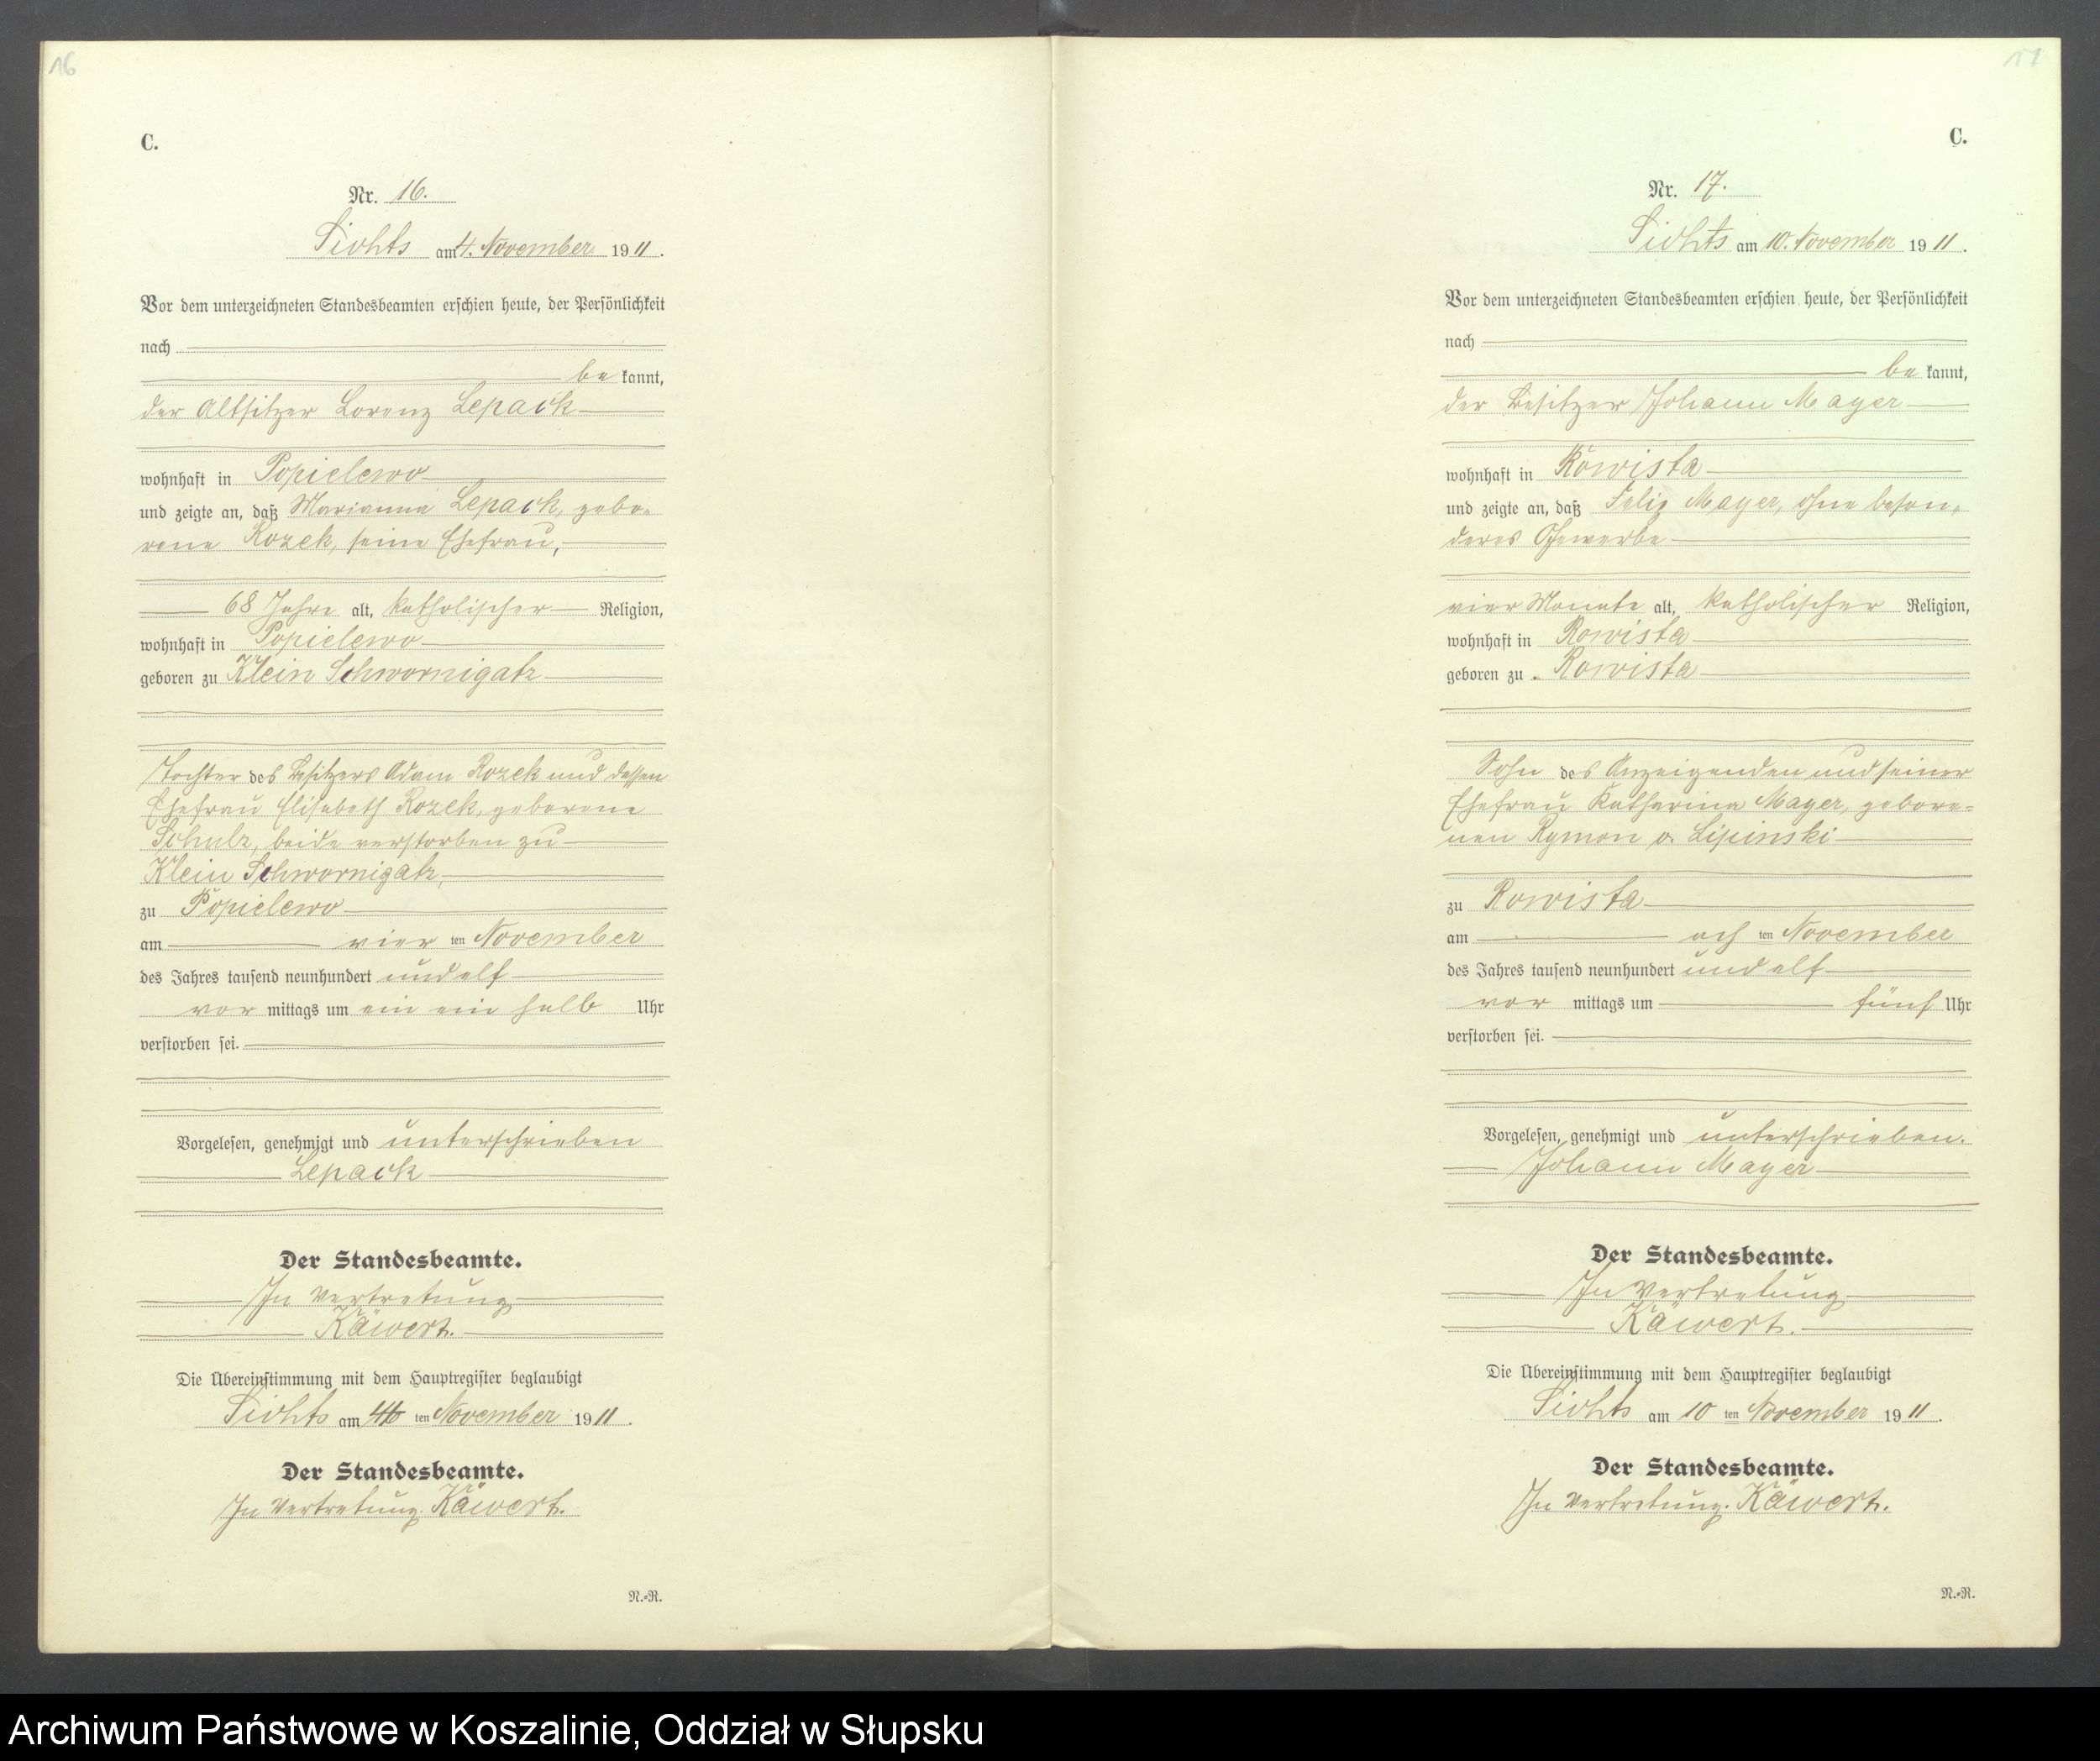 16
C.
Nr. 16.
Lichts am 4. November 1911.
Vor dem unterzeichneten Standesbeamten erschien heute, der Persönlichkeit
nach
be kannt,
der Altsitzer Lorenz Lepack
wohnhaft in Popielewo
und zeigte an, daß Marianna Lepack, gebo-
rene Rozek, seine Ehefrau,
68 Jahre alt, katholischer Religion,
wohnhaft in Popielewo
geboren zu Klein Schwornigatz
Tochter des Besitzers Adam Rozek und dessen
Ehefrau Elisabeth Rozek, geborene
Schulz, beide verstorben zu
Klein Schwornigatz,
zu Popielewo
am vier ten November
des Jahres tausend neunhundert und elf
vor mittags um ein ein halb Uhr
verstorben sei.
Vorgelesen, genehmigt und unterschrieben
Lepack
Der Standesbeamte.
In Vertretung
Käwert.
Die Übereinstimmung mit dem Hauptregister beglaubigt
am ten November 1911.
Der Standesbeamte.
In Vertretung. Käwert.
N.=R.
17
C.
Nr. 17.
am 10. November 1911.
Vor dem unterzeichneten Standesbeamten erschien heute, der Persönlichkeit
nach
be kannt,
der Besitzer Johann Mayer
wohnhaft in Rowista
und zeigte an, daß Felix Mayer, ohne beson-
deres Gewerbe
vier Monate alt, katholischer Religion,
wohnhaft in Rowista
geboren zu Rowista
Sohn des Anzeigenden und seiner
Ehefrau Katharina Mayer, gebore-
nen Rymon v. Lipinski
zu Rowista
am ach ten November
des Jahres tausend neunhundert und elf
vor mittags um fünf Uhr
verstorben sei.
Vorgelesen, genehmigt und unterschrieben.
Johann Mayer
Der Standesbeamte.
In Vertretung
Käwert.
Die Übereinstimmung mit dem Hauptregister beglaubigt
am 10 ten November 1911.
Der Standesbeamte.
In Vertretung. Käwert.
N.=R.
Archiwum Państwowe w Koszalinie, Oddział w Słupsku